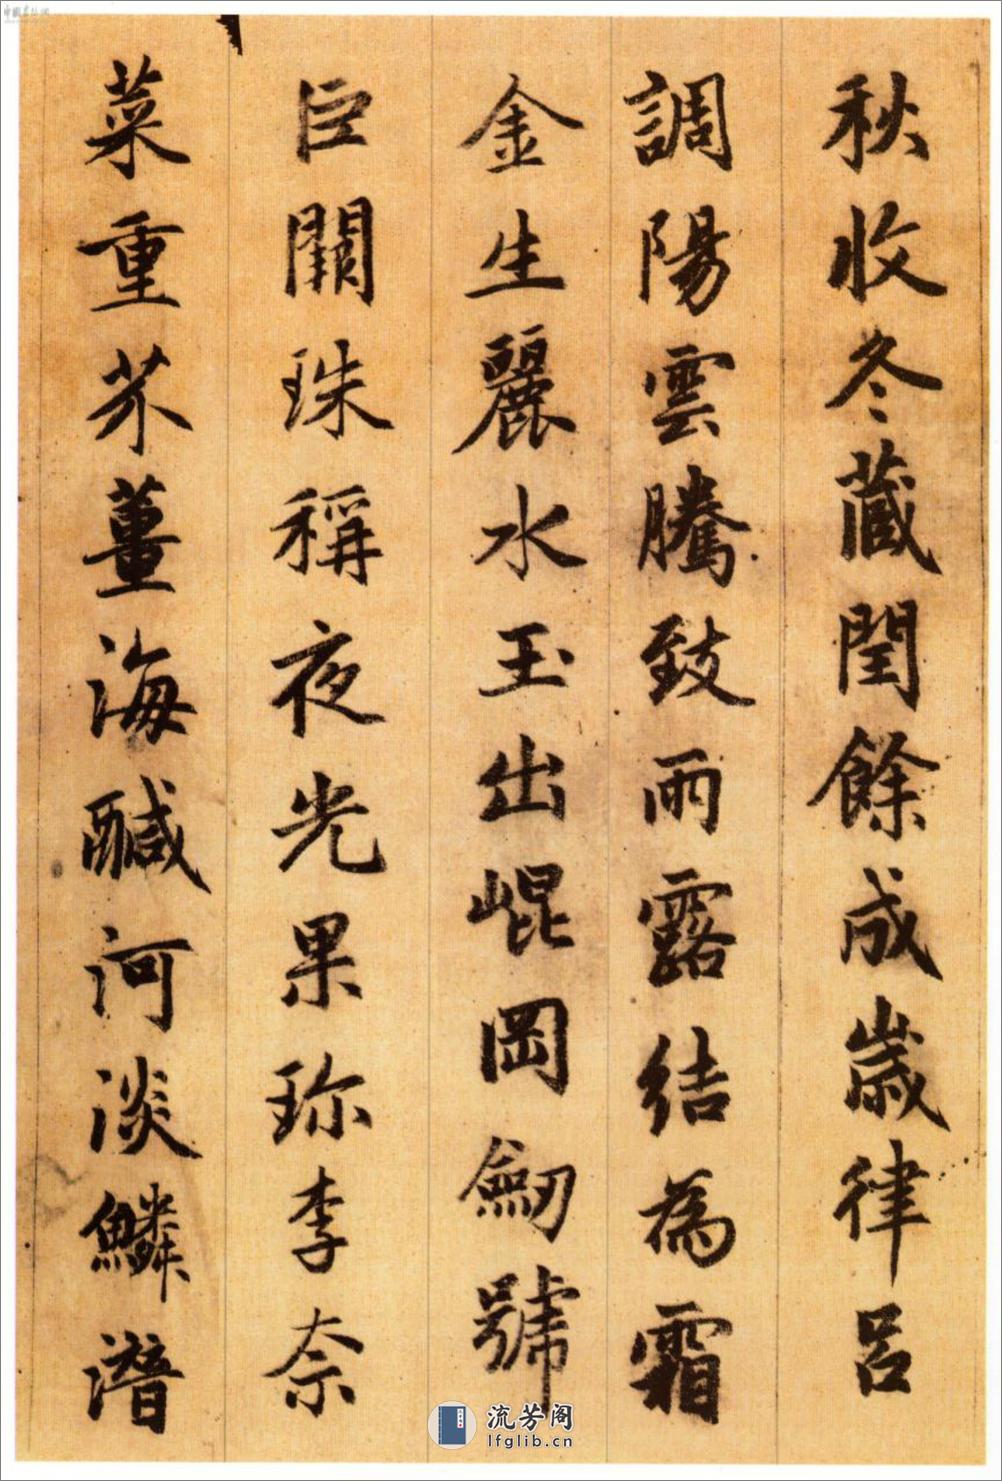 秋收冬藏閏餘成歲律呂
調陽雲騰致雨露結為霜
金生麗水玉出崐岡劒號
巨闕珠稱夜光果珎李柰
菜重芥薑海醎河淡鱗潛
流芳阁
lfglib.cn